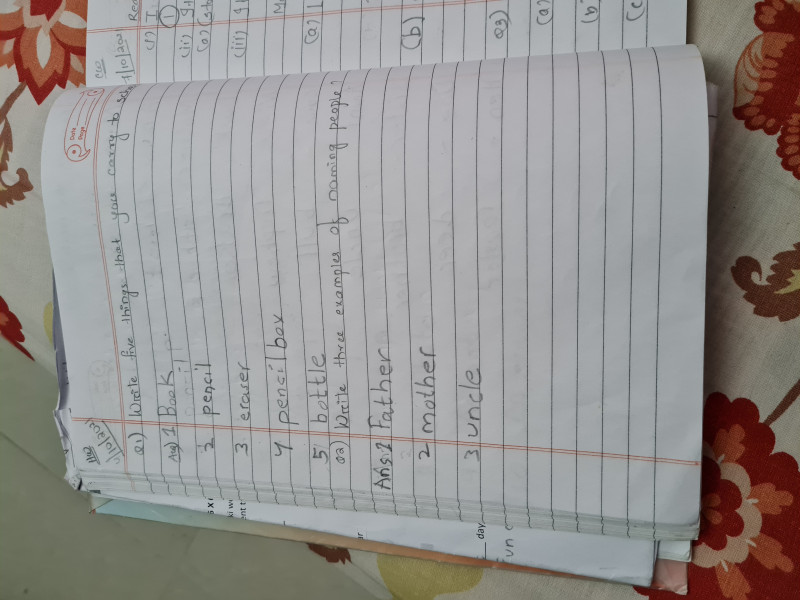 HW
Date
Page
Q1) Write five things that you carry to
Ans) 1 Book
2 pencil
3 eraser
4 pencil box
5 bottle
Q2) Write three examples of naming people?
Ans:1 Father
2 mother
3 uncle
(i)
(ii)
(iii)
(a)
(b)
Q3)
(a)
(b)
(c)
day